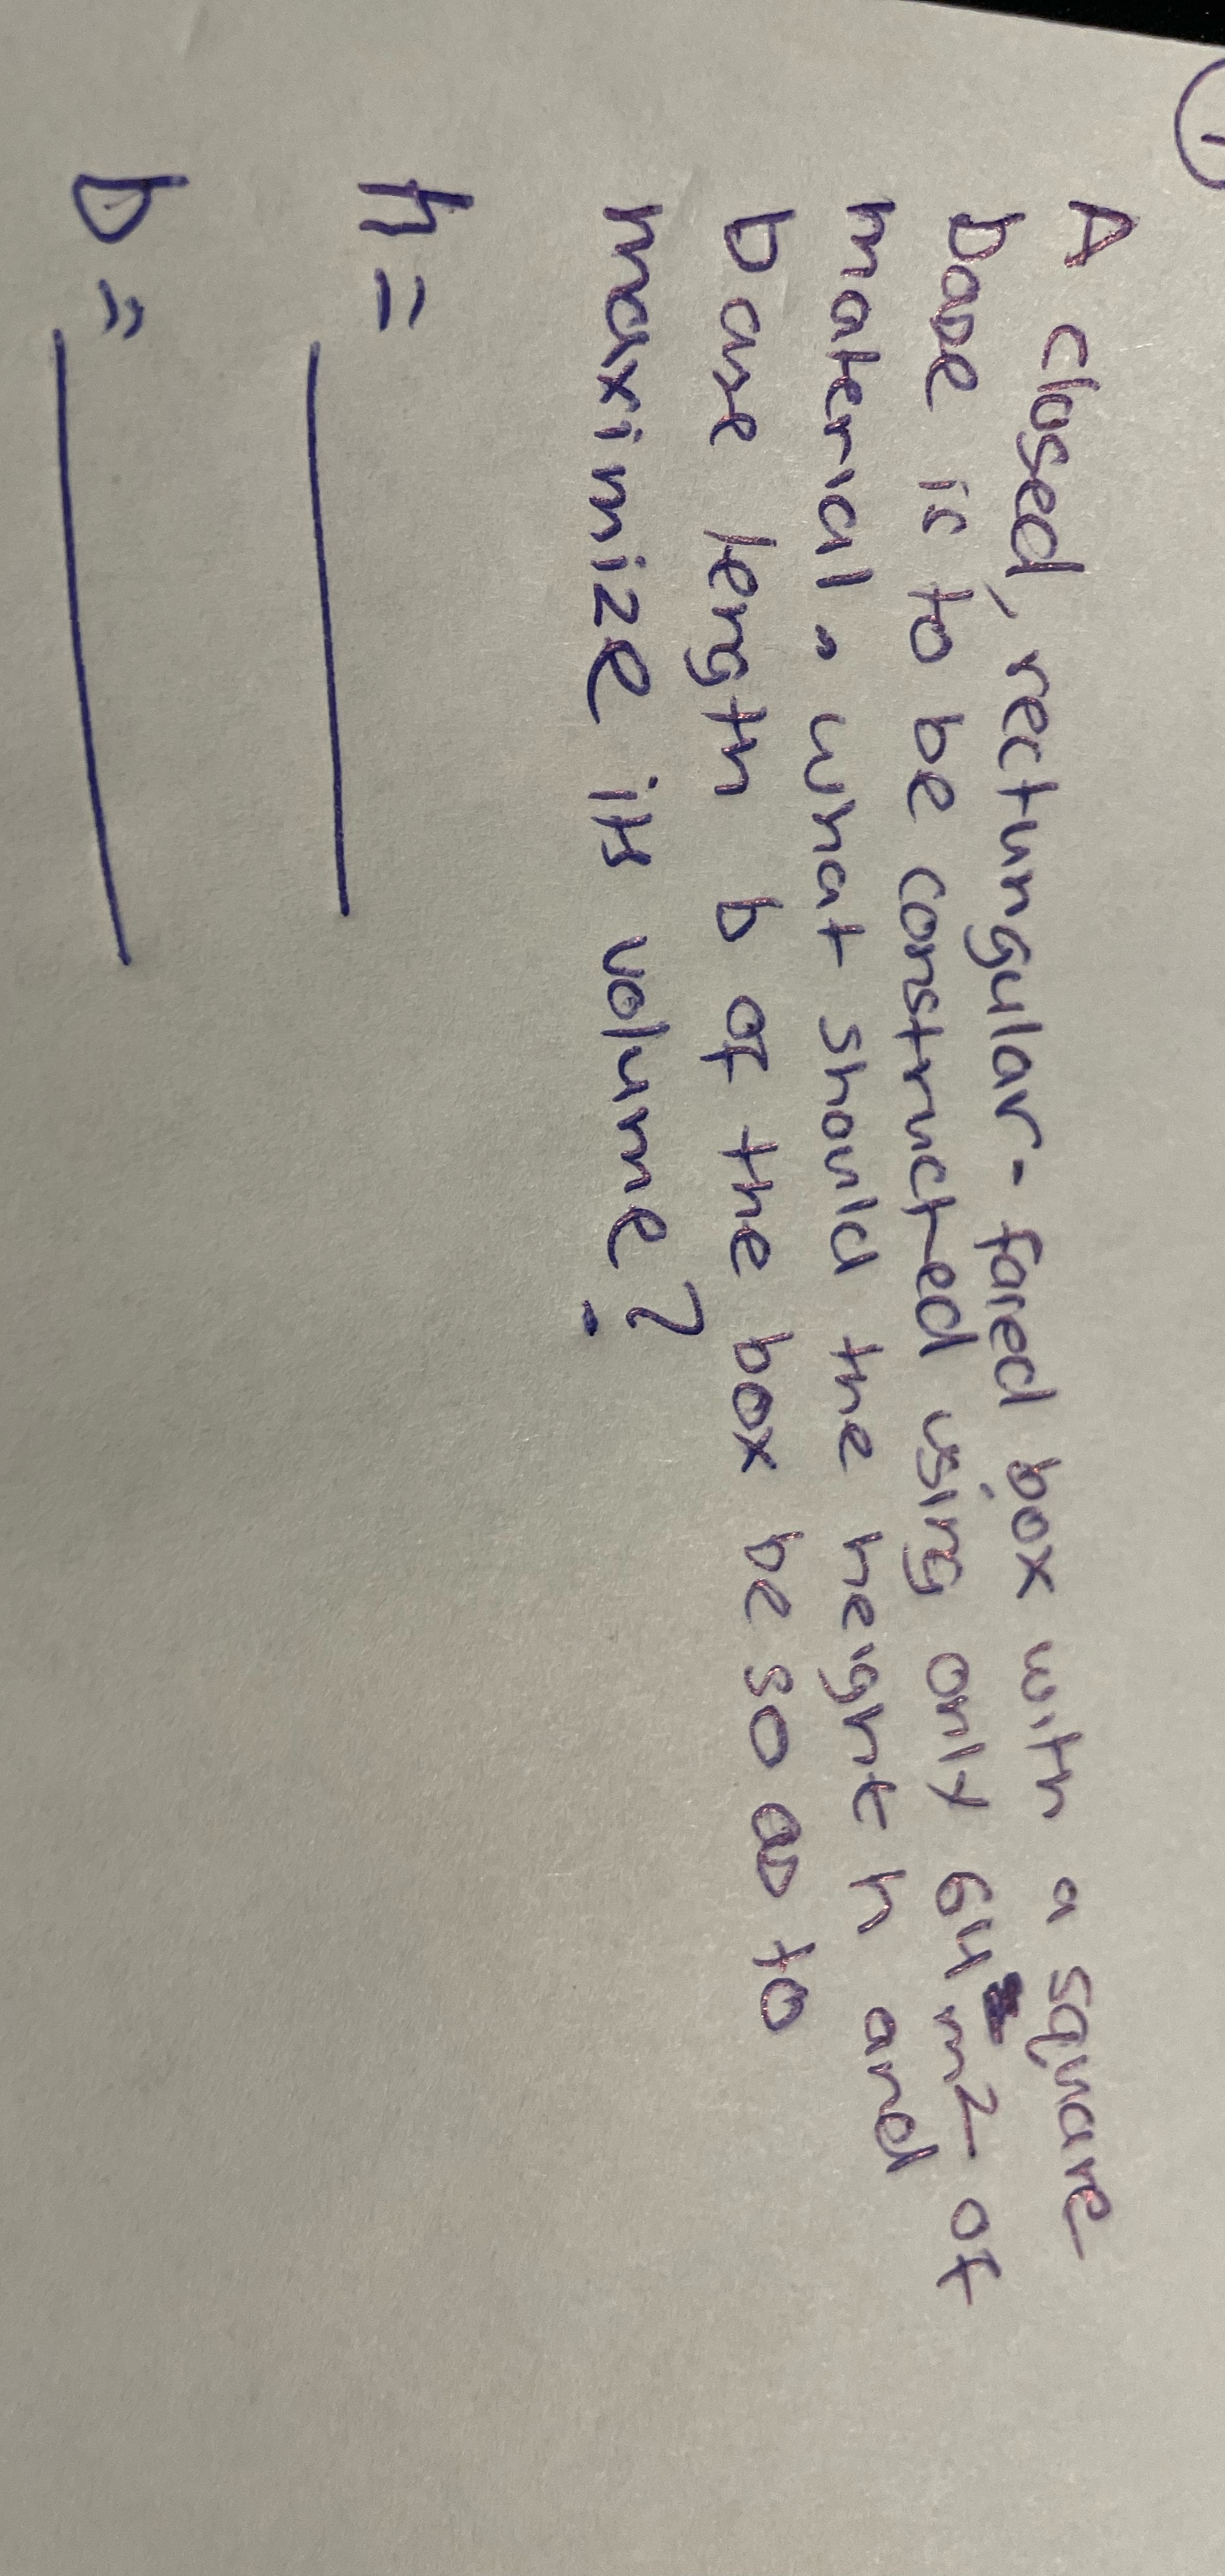 1
A closed, rectungular-faced box with a square
base is to be constructed using only 64 m2 of
material. what should the height h and
base length b of the box be so as to
maximize its volume?
h =
b =